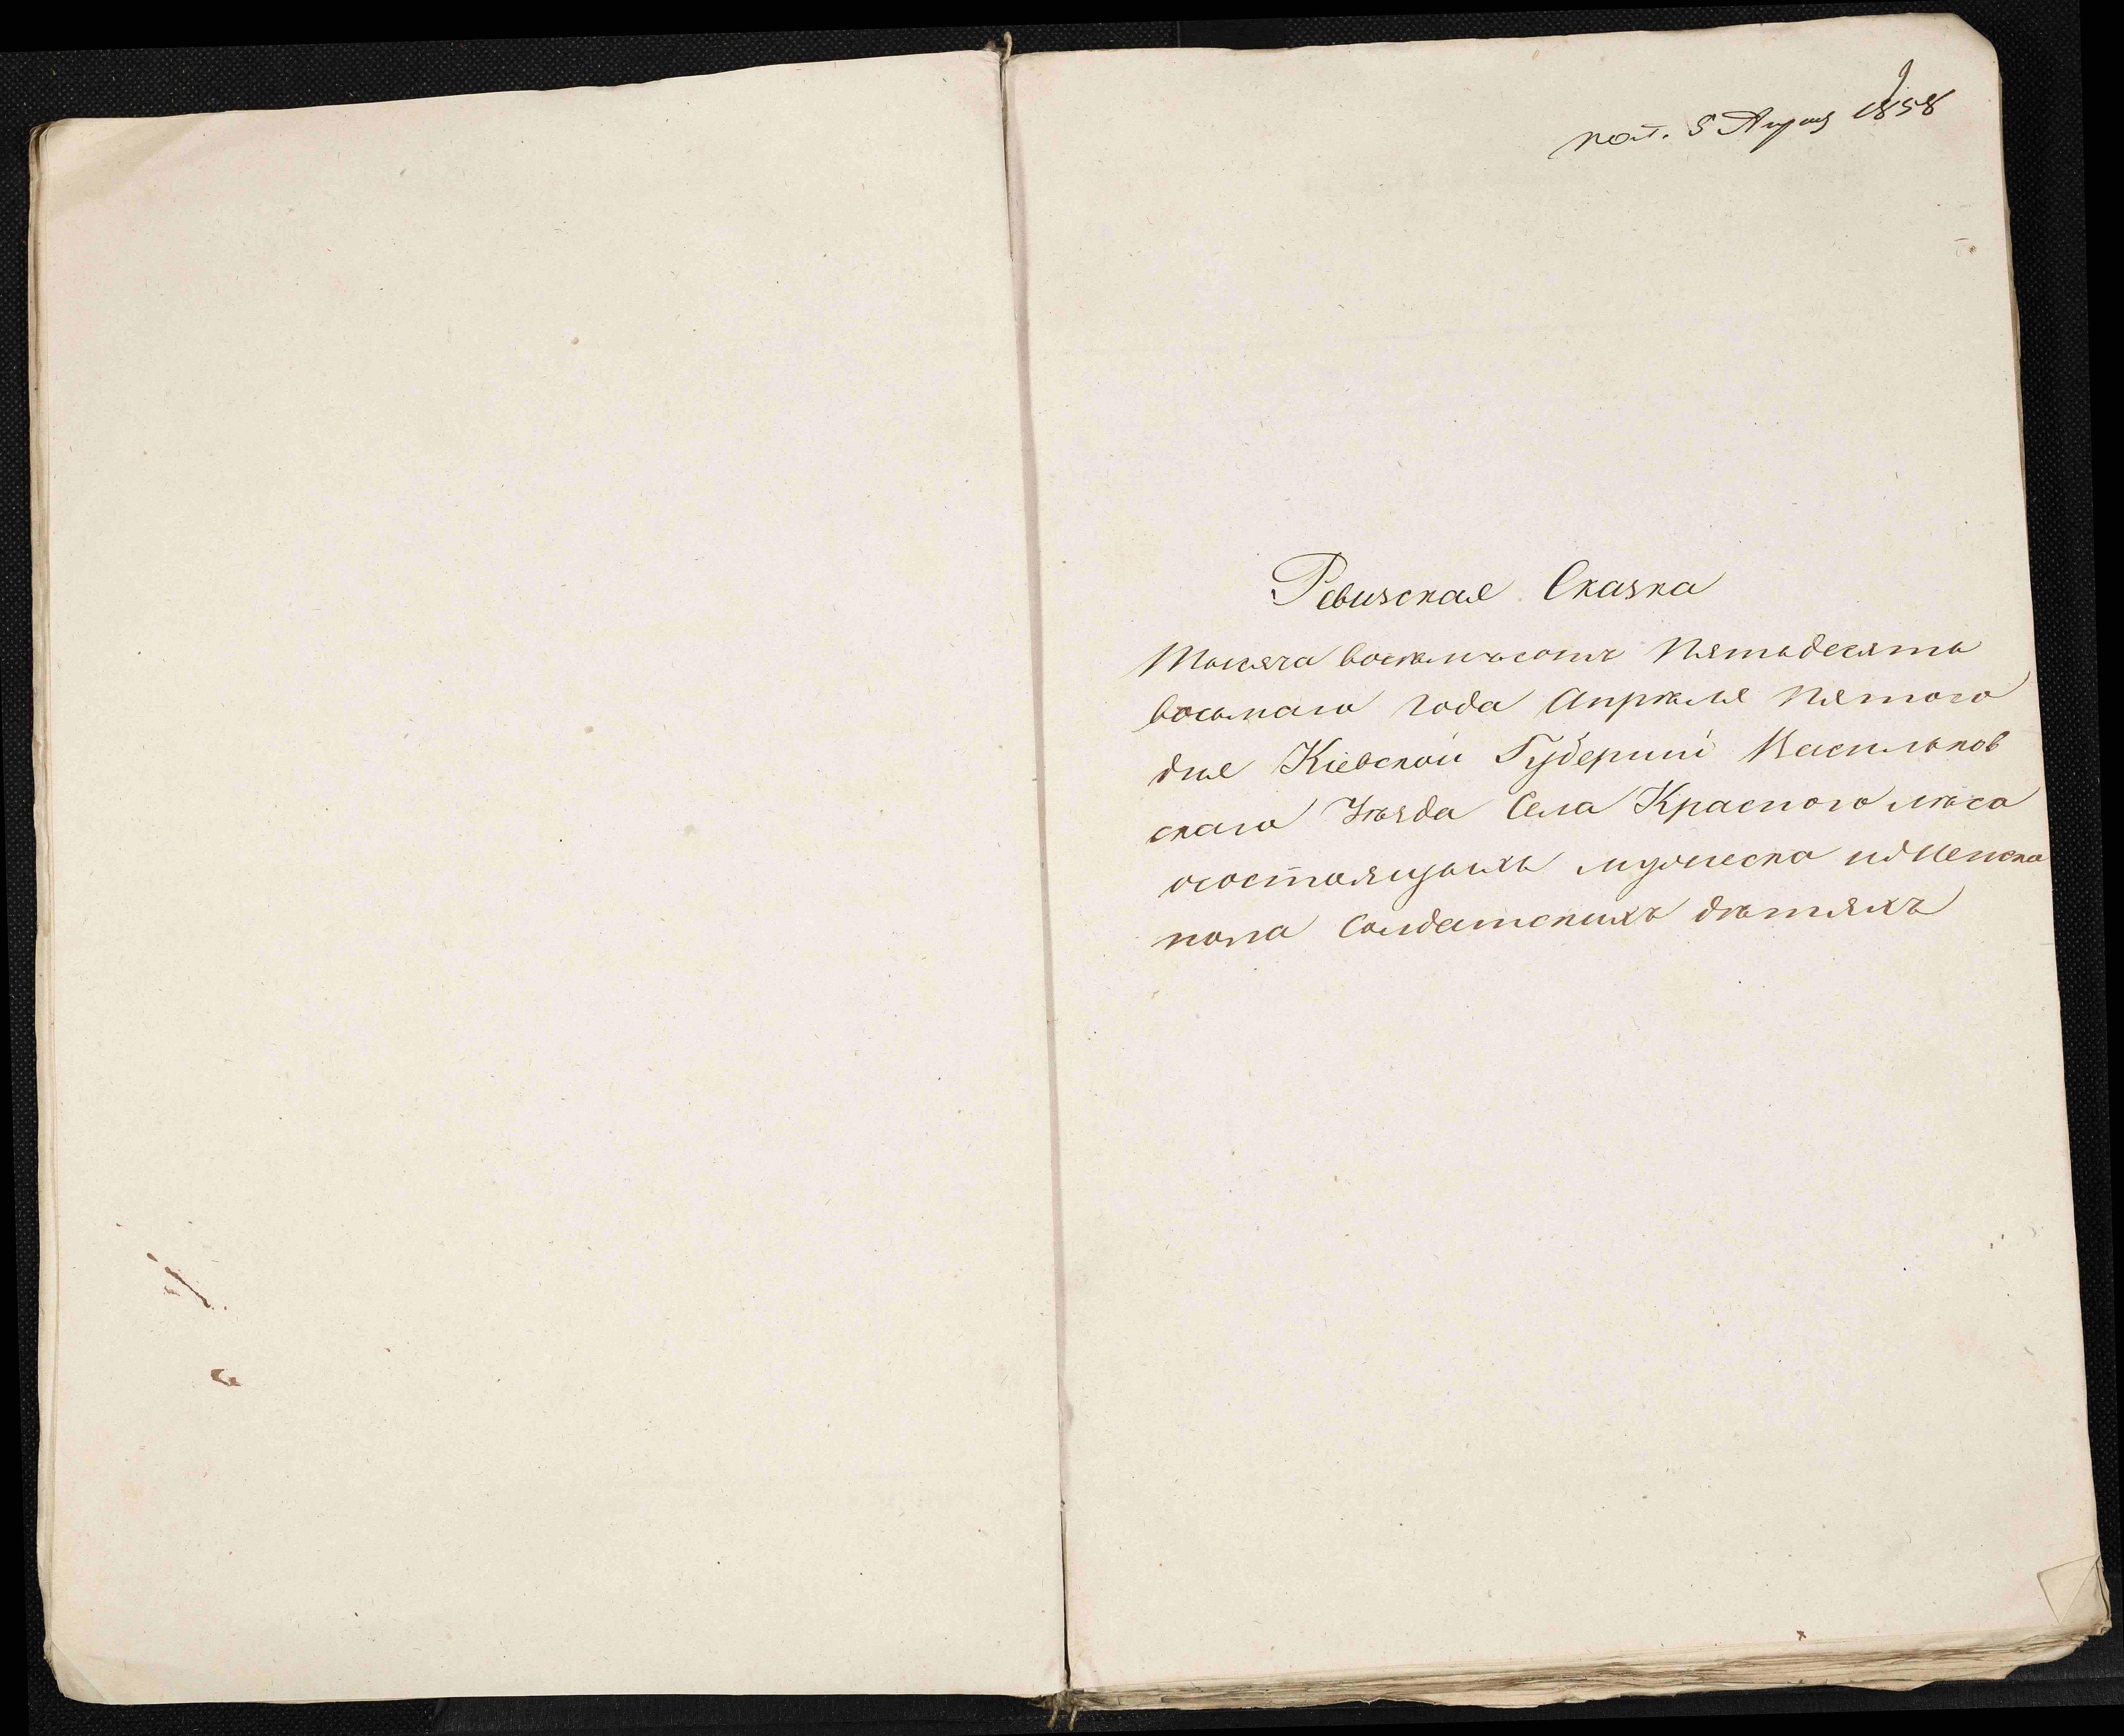 пол. 5 Апреля 1858
Ревизская Сказка
Тысяча восѣмъсотъ Пятьдесятъ
восьмаго года Апрѣля Пятого
дня Кіевской Губерніи Васильков
скаго Уѣзда Села Красного лѣса
осостоящыхъ мужеска и Женска
пола Солдатскихъ дѣтяхъ